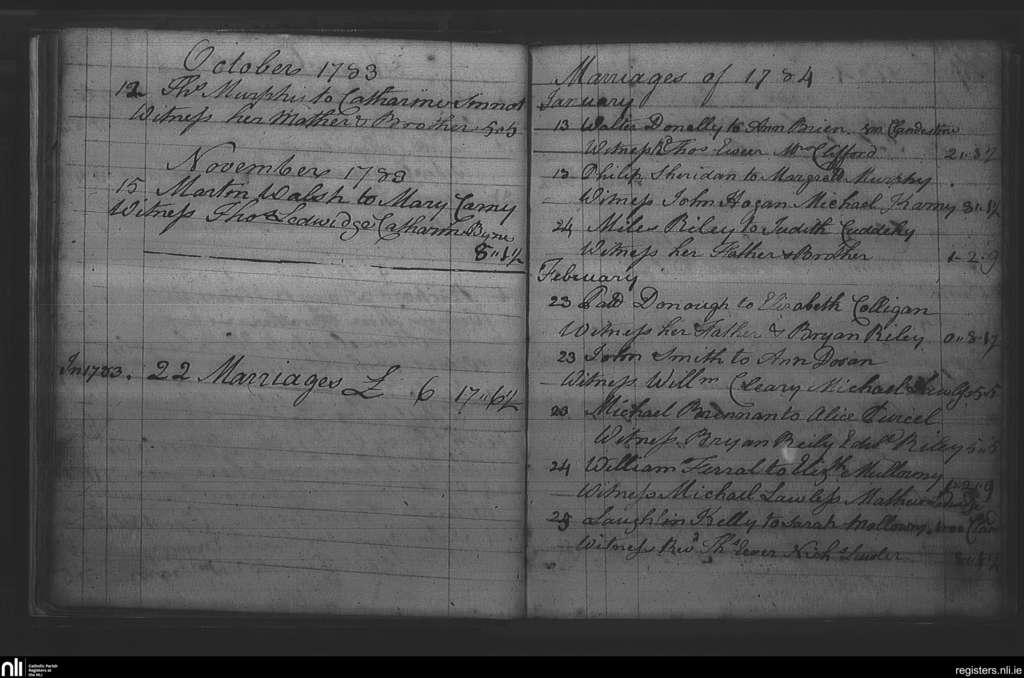 October 1783
12 Thos Murphy to Catharine Sinnot
Witness her Mother & Brother 5"5
November 1783
15 Martin Walsh to Mary Carny
Witness Thos Ledwidge Catharine Byrne
8"1½
In 1783. 22 Marriages £ 6 17"6½
Marriages of 1784
January
13 Walter Donelly to Ann Brien Clandestine
Witness Revd Thos Mr Clifford 2"8½
13 Philip Sheridan to Margrett Murphy
Witness John Hogan Michael 8"1½
24 Miles Riley to Judith Cuddehy
Witness her Father & Brother 1-2-9
February
23 Patt Donough to Elizabeth Colligan
Witness her Father & Bryan Riley 0"8"1½
23 John Smith to Ann Doran
Witness Willm Cleary Michael 5"5
23 Michael Brennan to Alice Purcel
Witness Bryan Reily Edwd Riley 5"5
24 William Farral to Elizth Mullowny
1-2"9
Witness Michael Lawless Mathew
25 Laughlin Kelly to Sarah Mollowny
Witness Revd Ths Nichs 8"1½
nli
Catholic Parish
Registers at
the NLI
registers.nli.ie